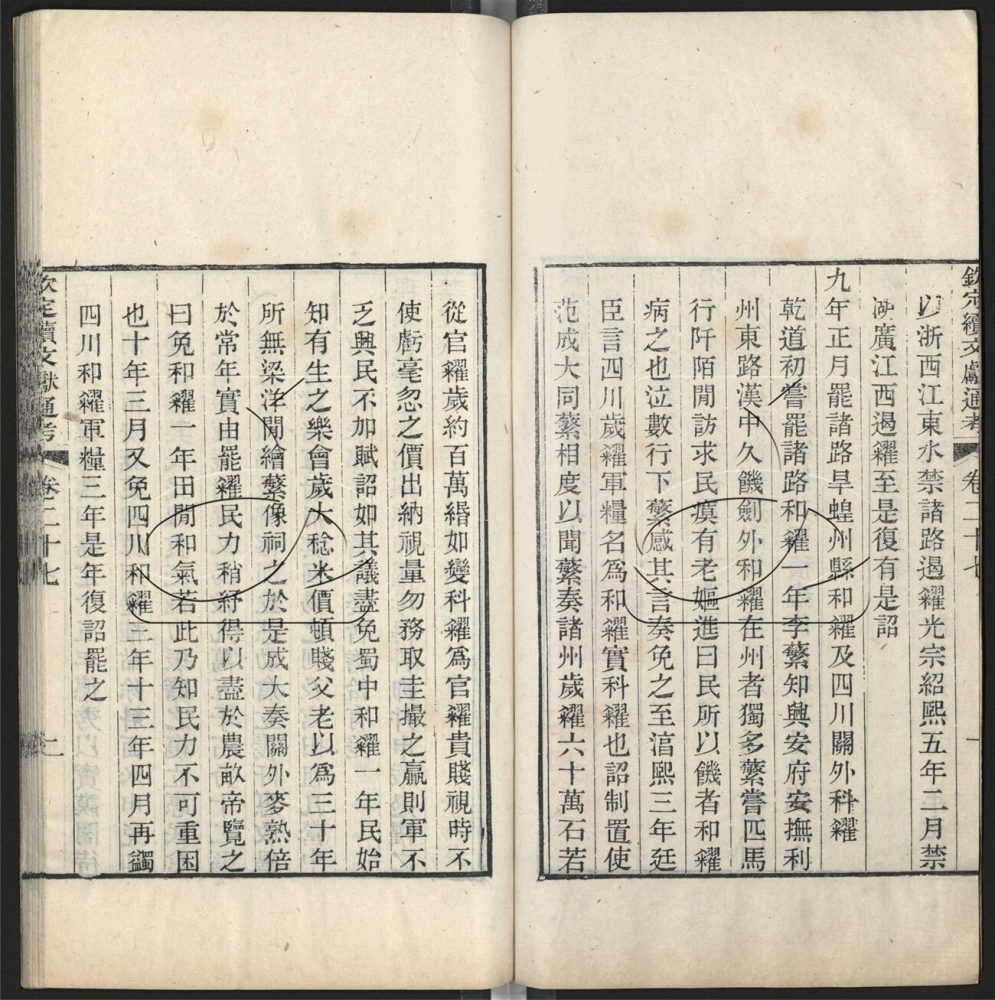 欽定續文獻通考 卷二十七 一
以浙西江東水禁諸路遏糴光宗紹熙五年二月禁
湖廣江西遏糴至是復有是詔
九年正月罷諸路旱蝗州縣和糴及四川關外科糴
乾道初嘗罷諸路和糴一年李蘩知興安府安撫利
州東路漢中久饑劍外和糴在州者獨多蘩嘗匹馬
行阡陌閒訪求民瘼有老嫗進曰民所以饑者和糴
病之也泣數行下蘩感其言奏免之至淳熙三年廷
臣言四川歲糴軍糧名爲和糴實科糴也詔制置使
范成大同蘩相度以聞蘩奏諸州歲糴六十萬石若
從官糴歲約百萬緡如變科糴爲官糴貴賤視時不
使虧毫忽之價出納視量勿務取圭撮之贏則軍不
乏興民不加賦詔如其議盡免蜀中和糴一年民始
知有生之樂會歲大稔米價頓賤父老以爲三十年
所無梁洋閒繪蘩像祠之於是成大奏關外麥熟倍
於常年實由罷糴民力稍紓得以盡於農畝帝覽之
曰免和糴一年田閒和氣若此乃知民力不可重困
也十年三月又免四川和糴三年十三年四月再蠲
四川和糴軍糧三年是年復詔罷之
欽定續文獻通考 卷二十七 二